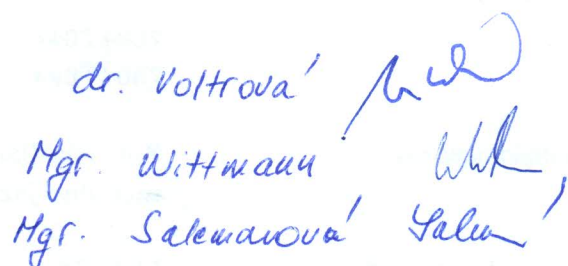 dr. Voltrová
Mgr. Wittmann
Mgr. Salcmanová